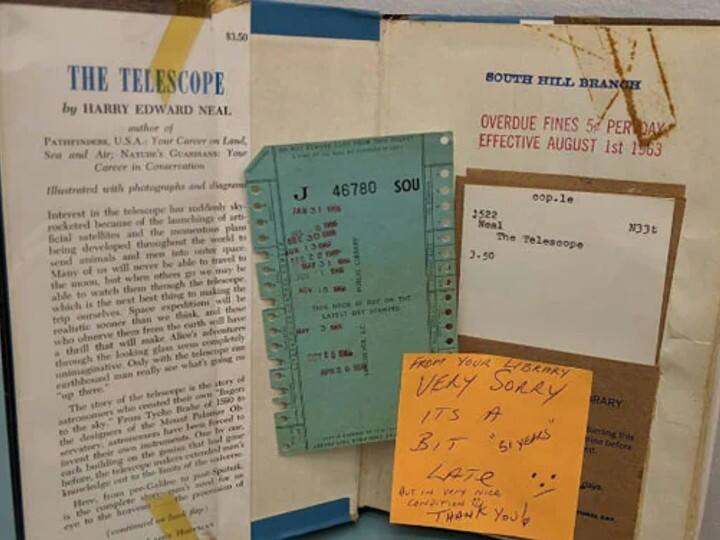 $3.50
THE TELESCOPE
by HARRY EDWARD NEAL
author of
PATHFINDERS, U.S.A.: Your Career on Land,
Sea and Air; NATURE'S GUARDIANS: Your
Career in Conservation
Illustrated with photographs and diagrams
Interest in the telescope has suddenly sky-
rocketed because of the launchings of arti-
ficial satellites and the momentous plans
being developed throughout the world to
send animals and men into outer space.
Many of us will never be able to travel to
the moon, but when others go we may be
able to watch them through the telescope,
which is the next best thing to making the
trip ourselves. Space expeditions will be
realistic sooner than we think, and those
who observe them from the earth will have
a thrill that will make Alice's adventures
through the looking glass seem completely
unimaginative. Only with the telescope can
earthbound man really see what's going on
"up there."
The story of the telescope is the story of
astronomers who created their own "fingers
to the sky." From Tycho Brahe of 1580 to
the designers of the Mount Palomar Ob-
servatory, astronomers have been forced to
invent their own instruments. One by one,
each building on the genius that had gone
before, the telescope makers extended man's
knowledge out to the limits of the universe.
Here, from pre-Galileo to post-Sputnik,
is the complete story
eye to the heavens
(continued on back flap)
J 46780 SOU
JAN 31
DEC 30
DEC 22
MAY 31
NOV 18
PUBLIC LIBRARY
THIS BOOK IS DUE ON THE
LATEST DAY STAMPED
MAY 3
APR 30
SOUTH HILL BRANCH
OVERDUE FINES 5¢ PER DAY
EFFECTIVE AUGUST 1st 1963
cop.1e
J522
Neal N33t
The Telescope
3.50
FROM YOUR LIBRARY
VERY SORRY
ITS A
BIT "51 YEARS"
LATE
BUT IN VERY NICE
CONDITION
THANK YOU